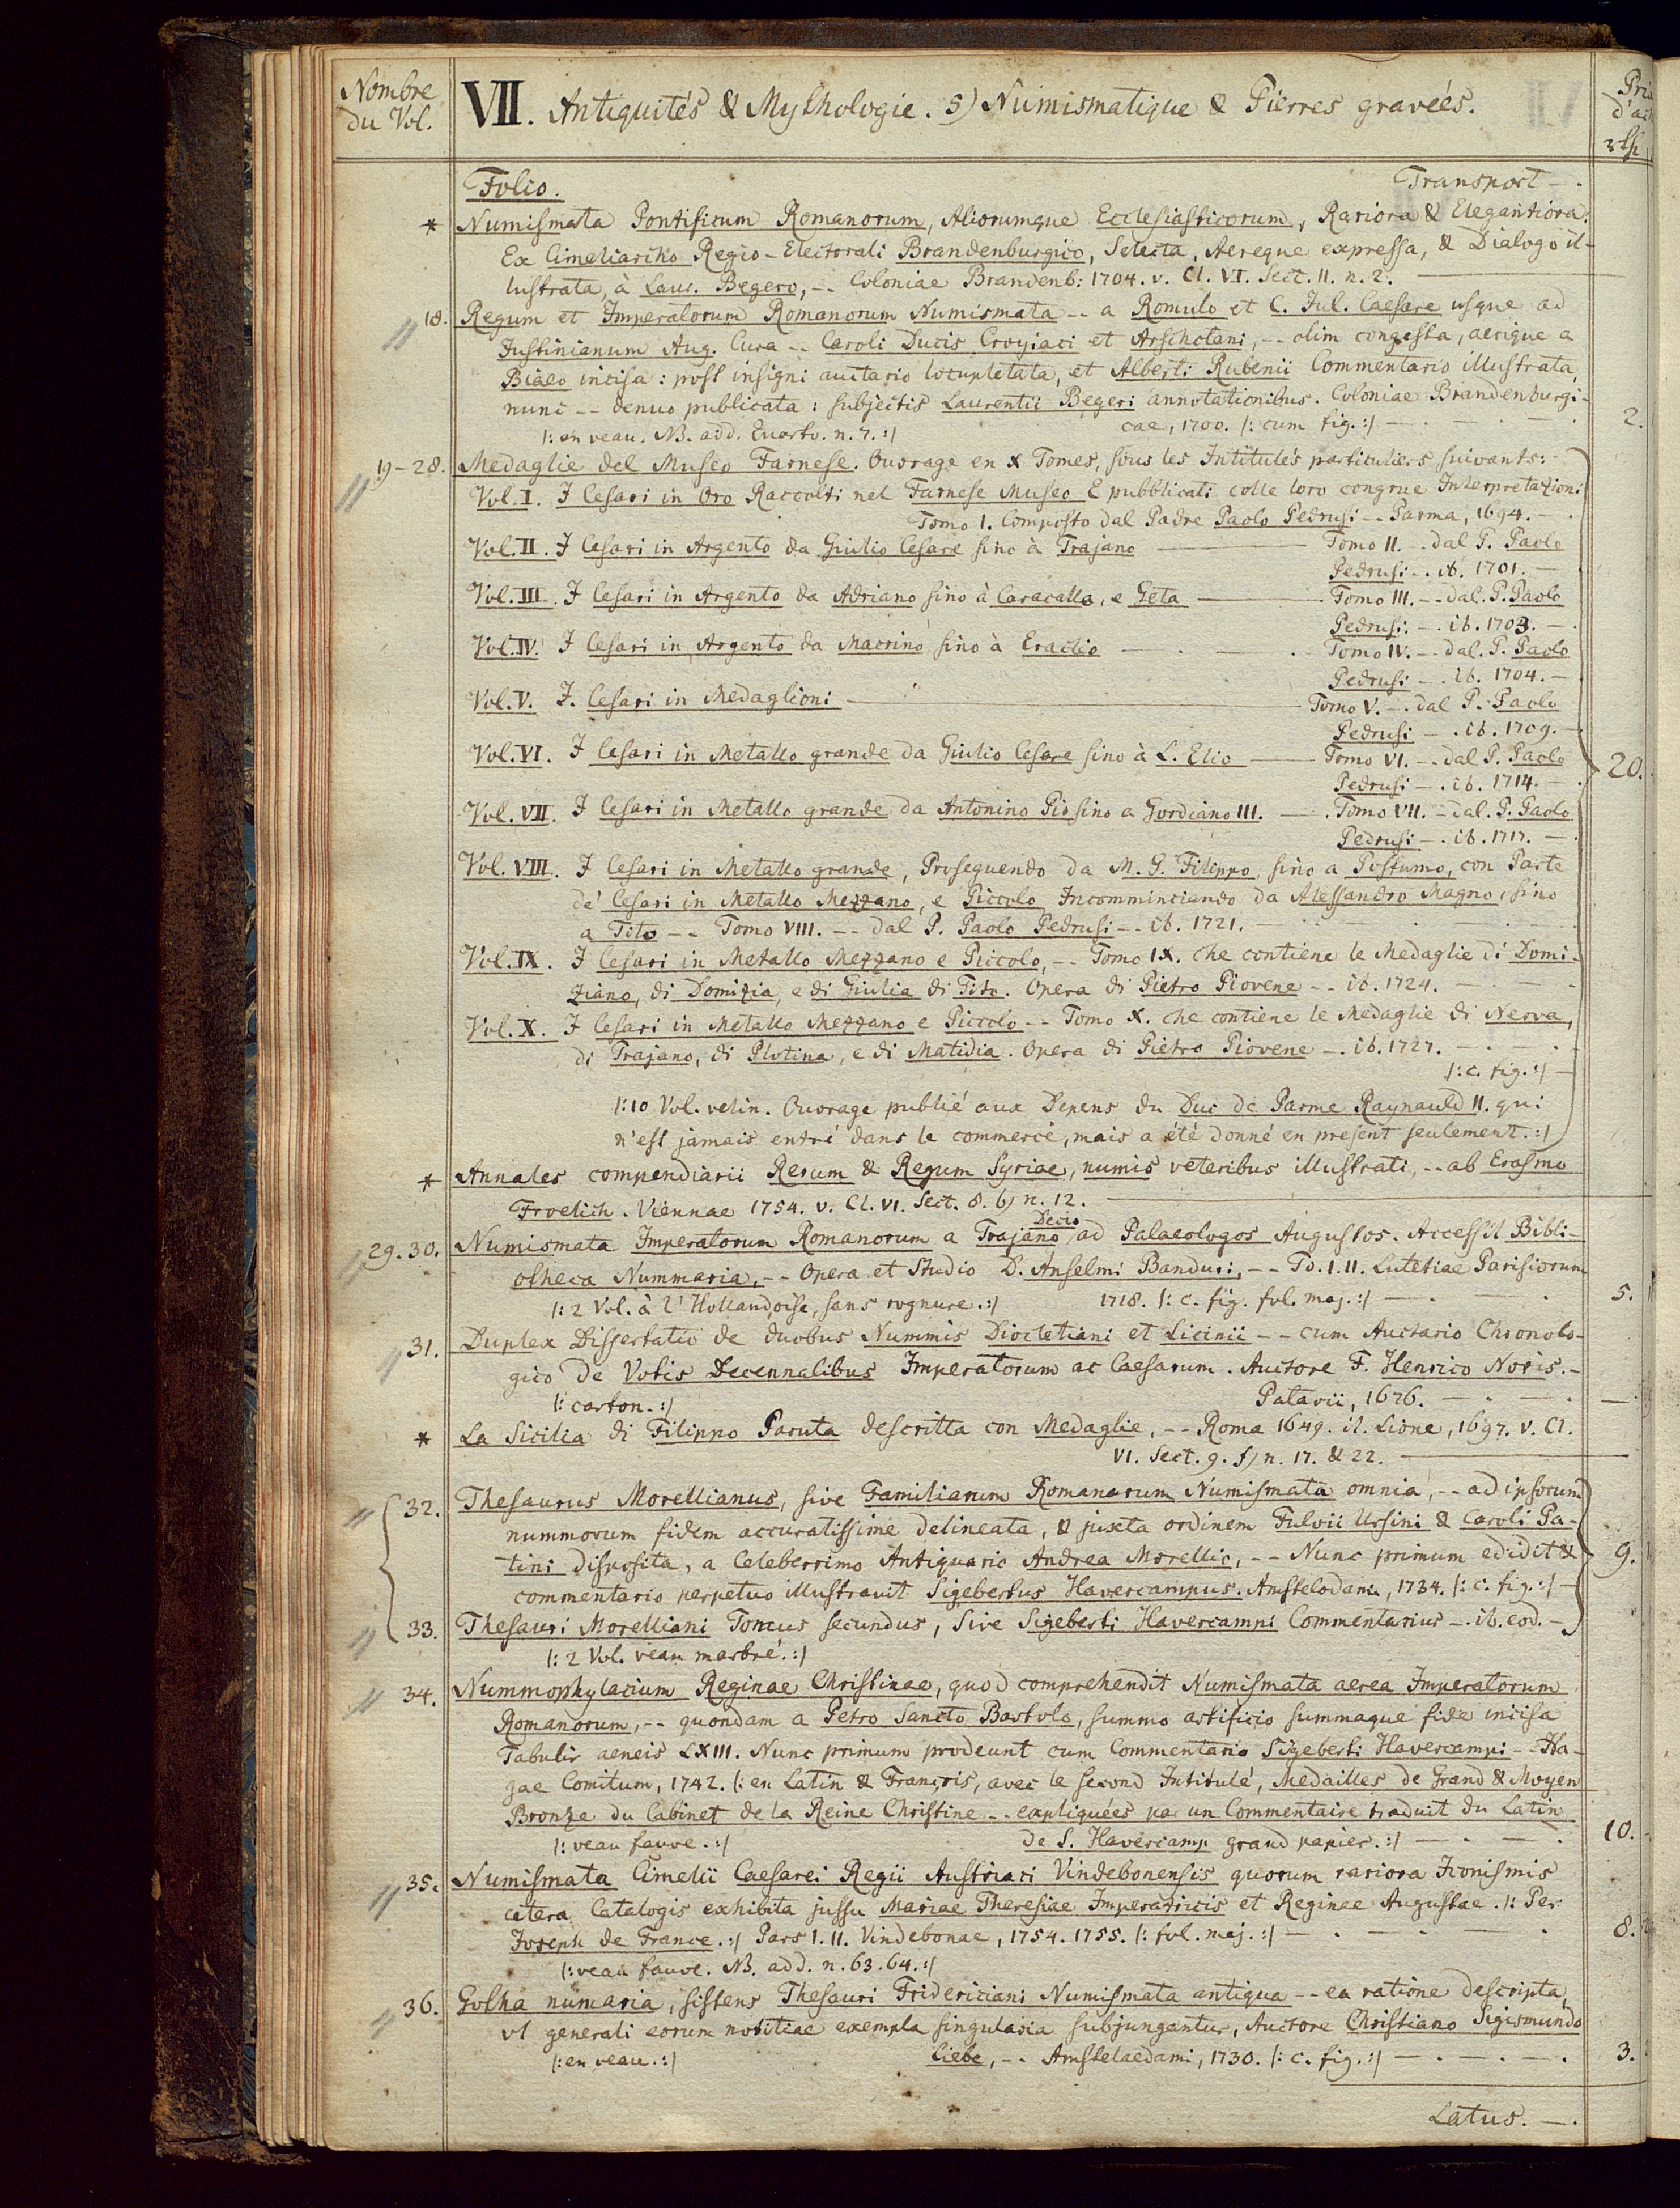 Nombre du Vol.
VII. Antiquités & Mythologie. 5) Numismatique & Pierres gravées.
Folio. Transport -.
* Numismata Pontificum Romanorum, Aliorumque Ecclesiasticorum, Rariora & Elegantiora:
Ex Cimeliarcho Regio-Electorali Brandenburgico, Selecta, Aereque expressa, & Dialogo il-
lustrata, à Laur. Begero, -- Coloniae Brandenb: 1704. v. Cl. VI. Sect. 11. n. 2.
18. Regum et Imperatorum Romanorum Numismata -- a Romulo et C. Jul. Caesare usque ad
Justinianum Aug. Cura -- Caroli Ducis Croyiaci et Arschotani, -- olim congesta, aerique a
Biaeo incisa: post insigni auctario locupletata, et Alberti Rubenii Commentario illustrata,
nunc -- denuo publicata: subjectis Laurentii Begeri annotationibus. Coloniae Brandenburgi-
|: en veau. NB. add. Quarto. n. 7. :| cae, 1700. |: cum fig. :| 2.
19-28. Medaglie del Museo Farnese. Ouvrage en X Tomes, sous les Intitulés particuliers suivants:
Vol. I. I Cesari in Oro Raccolti nel Farnese Museo E pubblicati colle loro congrue Interpretazioni
Tomo 1. Composto dal Padre Paolo Pedrusi -- Parma, 1694.
Vol. II. I Cesari in Argento da Giulio Cesare sino à Trajano Tomo II. -- dal P. Paolo
Pedrusi -. ib. 1701.
Vol. III. I Cesari in Argento da Adriano sino à Caracalla, e Geta Tomo III. -- dal. P. Paolo
Pedrusi. -. ib. 1703.
Vol. IV. I Cesari in Argento da Macrino sino à Eraclio Tomo IV. -- dal. P. Paolo
Pedrusi -. ib. 1704.
Vol. V. I. Cesari in Medaglioni Tomo V. -. dal P. Paolo
Pedrusi -. ib. 1709.
Vol. VI. I Cesari in Metallo grande da Giulio Cesare sino à L. Elio Tomo VI. -- dal P. Paolo 20.
Pedrusi -. ib. 1714.
Vol. VII. I Cesari in Metallo grande da Antonino Pio sino a Gordiano III. Tomo VII. - dal. P. Paolo
Pedrusi -. ib. 1717.
Vol. VIII. I Cesari in Metallo grande, Proseguendo da M. G. Filippo sino a Postumo, con Parte
de' Cesari in Metallo Mezzano, e Piccolo Incomminciando da Alessandro Magno, sino
a Tito -- Tomo VIII. -- dal P. Paolo Pedrusi -- ib. 1721.
Vol. IX. I Cesari in Metallo Mezzano e Piccolo, -- Tomo IX. che contiene le Medaglie di Domi-
ziano, di Domizia, e di Giulia di Tito. Opera di Pietro Piovene -- ib. 1724.
Vol. X. I Cesari in Metallo Mezzano e Piccolo -- Tomo X. che contiene le Medaglie di Nerva,
di Trajano, di Plotina, e di Matidia. Opera di Pietro Piovene -. ib. 1727.
|: c. fig. :|
|: 10 Vol. velin. Ouvrage publié aux Depens du Duc de Parme Raynauld II. qui
n'est jamais entré dans le commerce, mais a été donné en present seulement. :|
* Annales compendiarii Rerum & Regum Syriae, numis veteribus illustrati, -- ab Erasmo
Froelich. Viennae 1754. v. Cl. VI. Sect. 8. b) n. 12.
Decio
29. 30. Numismata Imperatorum Romanorum a Trajano ad Palaeologos Augustos. Accessit Bibli-
otheca Nummaria, -- Opera et Studio D. Anselmi Banduri, -- To. I. II. Lutetiae Parisiorum
|: 2 Vol. à l'Hollandoise, sans rognure. :| 1718. |: c. fig. fol. maj. :| 5.
31. Duplex Dissertatio de duobus Nummis Diocletiani et Licinii -- cum Auctario Chronolo-
gico De Votis Decennalibus Imperatorum ac Caesarum. Auctore F. Henrico Noris. -
|: carton. :| Patavii, 1676.
* La Sicilia di Filippo Paruta descritta con Medaglie, -- Roma 1649. it. Lione, 1697. v. Cl.
VI. Sect. 9. f) n. 17. & 22.
32. Thesaurus Morellianus, sive Familiarum Romanarum Numismata omnia, -- ad ipsorum
nummorum fidem accuratissime delineata, & juxta ordinem Fulvii Ursini & Caroli Pa-
tini disposita, a Celeberrimo Antiquario Andrea Morellio, -- Nunc primum edidit & 9.
commentario perpetuo illustravit Sigebertus Havercampus. Amstelodami, 1734. |: c. fig. :|
33. Thesauri Morelliani Tomus secundus, Sive Sigeberti Havercampi Commentarius -. ib. eod. -
|: 2 Vol. veau marbré. :|
34. Nummophylacium Reginae Christinae, quod comprehendit Numismata aerea Imperatorum
Romanorum, -- quondam a Petro Sancto Bartolo, summo artificio summaque fide incisa
Tabulis aeneis LXIII. Nunc primum prodeunt cum Commentario Sigeberti Havercampi -- Ha-
gae Comitum, 1742. |: en Latin & François, avec le second Intitulé, Medailles de Grand & Moyen
Bronze du Cabinet de la Reine Christine -- expliquées par un Commentaire traduit du Latin
|: veau fauve. :| de S. Havercamp grand papier. :| 10.
35. Numismata Cimelii Caesarei Regii Austriaci Vindobonensis quorum rariora Iconismis
cetera Catalogis exhibita jussu Mariae Theresiae Imperatricis et Reginae Augustae. |: Per
Joseph de France. :| Pars I. II. Vindobonae, 1754. 1755. |: fol. maj. :| 8.
|: veau fauve. NB. add. n. 63. 64. :|
36. Gotha numaria, sistens Thesauri Fridericiani Numismata antiqua -- ea ratione descripta,
vt generali eorum notitiae exempla singularia subjungantur, Auctore Christiano Sigismundo
|: en veau. :| Liebe, -. Amstelaedami, 1730. |: c. fig. :| 3.
Latus. -.